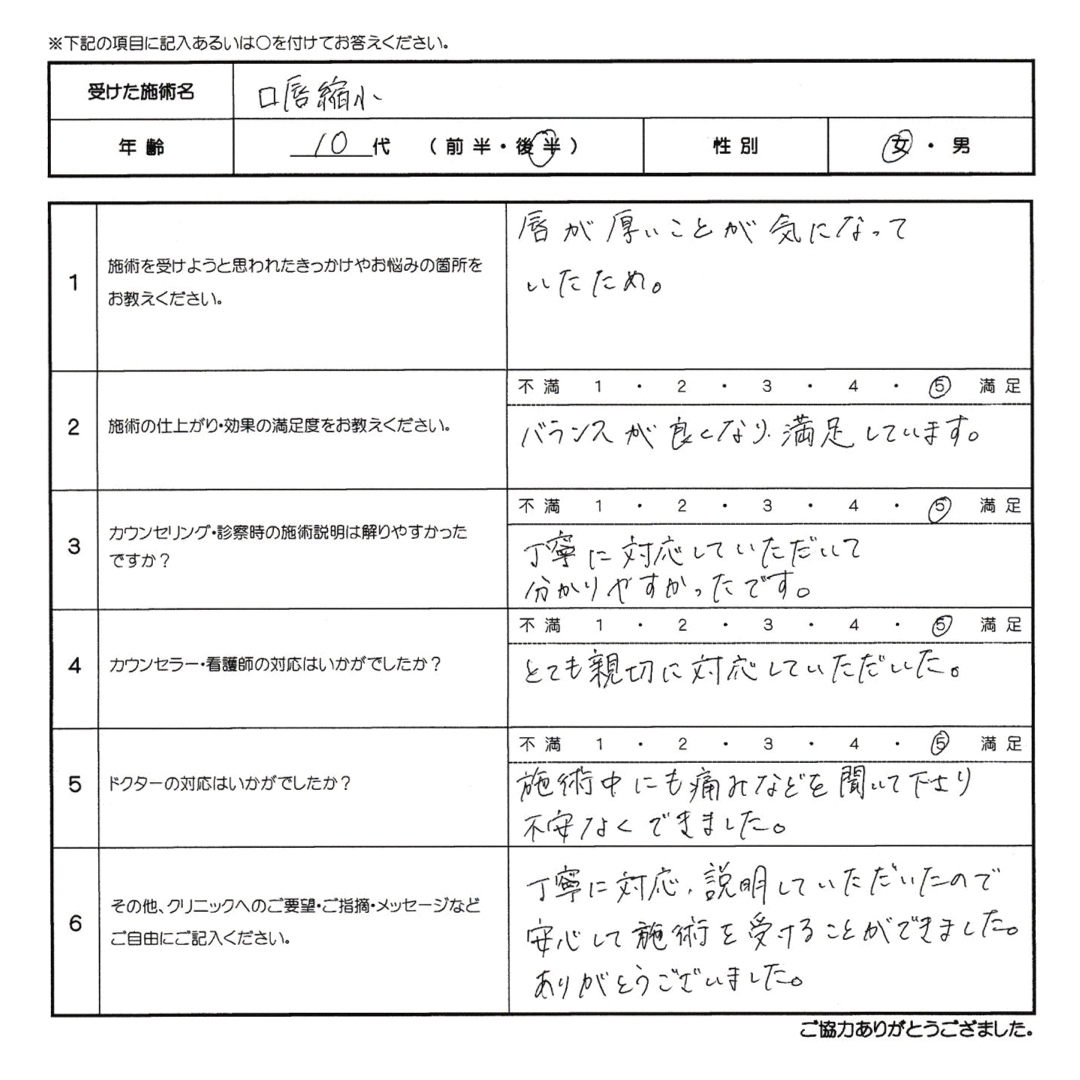 ※下記の項目に記入あるいは○を付けてお答えください。
受けた施術名 口唇縮小
年齢 10 代 (前半・後半) 性別 女・男
1 施術を受けようと思われたきっかけやお悩みの箇所を
お教えください。
唇が厚いことが気になって
いたため。
2 施術の仕上がり・効果の満足度をお教えください。
不満 1 ・ 2 ・ 3 ・ 4 ・ 5 満足
バランスが良くなり満足しています。
3 カウンセリング・診察時の施術説明は解りやすかった
ですか?
不満 1 ・ 2 ・ 3 ・ 4 ・ 5 満足
丁寧に対応していただいて
分かりやすかったです。
4 カウンセラー・看護師の対応はいかがでしたか?
不満 1 ・ 2 ・ 3 ・ 4 ・ 5 満足
とても親切に対応していただいた。
5 ドクターの対応はいかがでしたか?
不満 1 ・ 2 ・ 3 ・ 4 ・ 5 満足
施術中にも痛みなどを聞いて下さり
不安なくできました。
6 その他、クリニックへのご要望・ご指摘・メッセージなど
ご自由にご記入ください。
丁寧に対応、説明していただいたので
安心して施術を受けることができました。
ありがとうございました。
ご協力ありがとうござました。